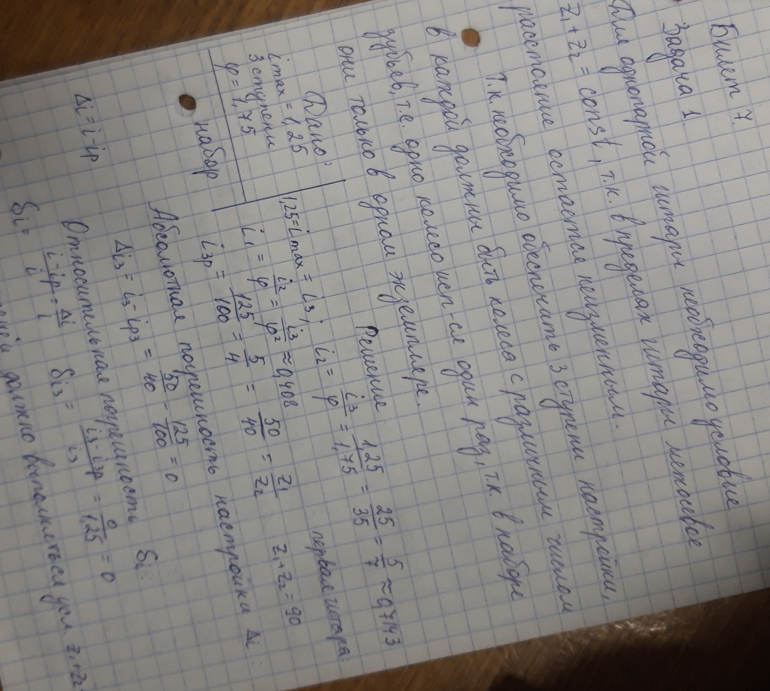 Билет 7.
Задача 1
Для однопарной гитары необходимо условие
z₁+z₂ = const, т.к. в пределах гитары межосевое
расстояние остается неизменным.
Т.к. необходимо обеспечить 3 ступени настройки,
в каждой должны быть колеса с различным числом
зубьев, т.е. одно колесо исп-ся один раз, т.к. в наборе
они только в одном экземпляре.
Дано:
imax = 1,25
3 ступени
φ = 1,75
набор
Решение
1,25 = imax = i₃; i₂ = i₃/φ = 1,25/1,75 = 25/35 = 5/7 ≈ 0,7143
i₁ = i₂/φ = i₃/φ² ≈ 0,408
первая гитара:
i₃p = 125/100 = 5/4 = 50/40 = z₁/z₂ z₁+z₂ = 90
Абсолютная погрешность настройки Δi:
Δi = i - ip
Δi₃ = i₃ - ip₃ = 50/40 - 125/100 = 0
Относительная погрешность δi:
δi = i-ip/i = Δi/i δi₃ = i₃-i₃p/i₃ = 0/1,25 = 0
должно выполняться усл z₁+z₂